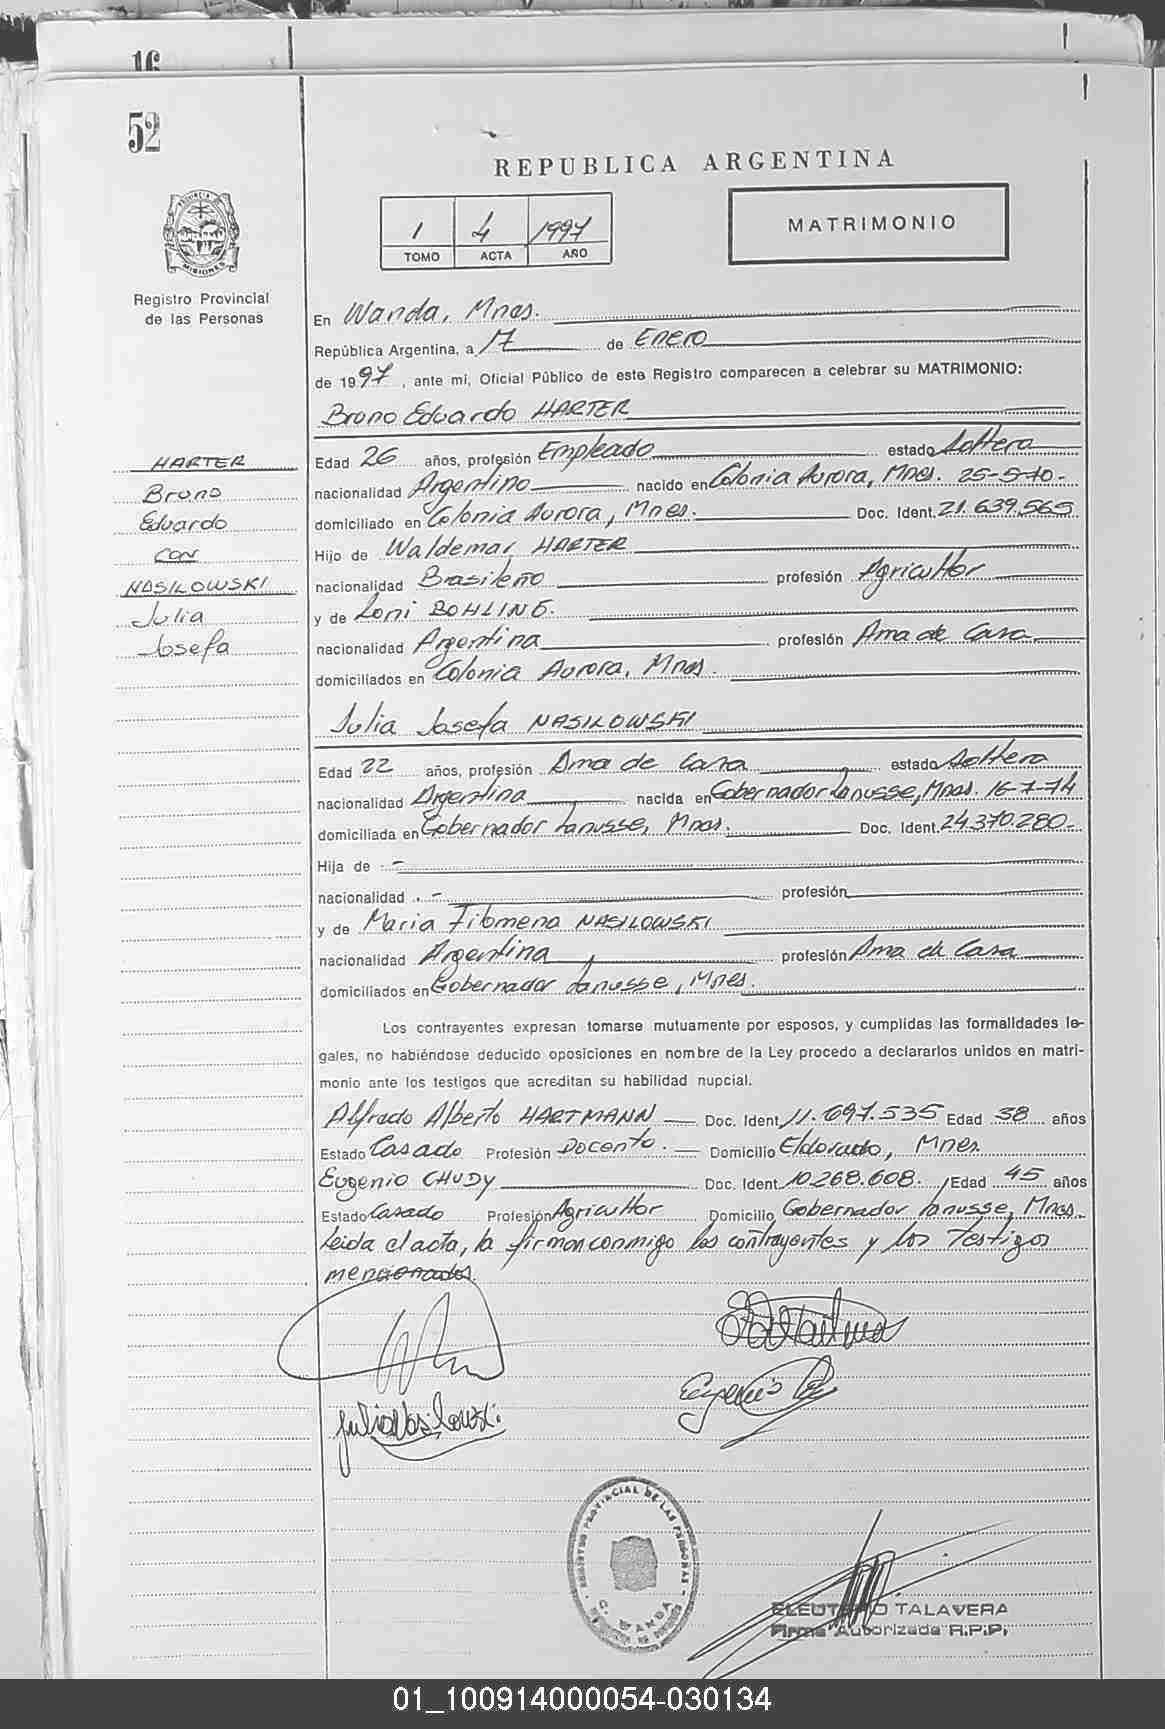 16
52
REPUBLICA ARGENTINA
PROVINCIA DE
MISIONES
Registro Provincial
de las Personas
1 4 1997
TOMO ACTA AÑO
MATRIMONIO
En Wanda, Mnes.
República Argentina, a 17 de Enero
de 1997, ante mi, Oficial Público de este Registro comparecen a celebrar su MATRIMONIO:
Bruno Eduardo HARTER
HARTER
Bruno
Eduardo
CON
NASILOWSKI
Julia
Josefa
Edad 26 años, profesión Empleado estado Soltero
nacionalidad Argentino nacido en Colonia Aurora, Mnes. 25-5-70-
domiciliado en Colonia Aurora, Mnes. Doc. Ident. 21.639.565
Hijo de Waldemar HARTER
nacionalidad Brasileño profesión Agricultor
y de Loni BOHLING.
nacionalidad Argentina profesión Ama de Casa
domiciliados en Colonia Aurora, Mnes.
Julia Josefa NASILOWSKI
Edad 22 años, profesión Ama de Casa estado Soltera
nacionalidad Argentina nacida en Gobernador Lanusse, Mnes. 16-7-74
domiciliada en Gobernador Lanusse, Mnes. Doc. Ident. 24.370.280-
Hija de -
nacionalidad - profesión
y de Maria Filomena NASILOWSKI
nacionalidad Argentina profesión Ama de Casa
domiciliados en Gobernador Lanusse, Mnes.
Los contrayentes expresan tomarse mutuamente por esposos, y cumplidas las formalidades le-
gales, no habiéndose deducido oposiciones en nombre de la Ley procedo a declararlos unidos en matri-
monio ante los testigos que acreditan su habilidad nupcial.
Alfredo Alberto HARTMANN Doc. Ident. 11.697.535 Edad 38 años
Estado Casado Profesión Docente. Domicilio Eldorado, Mnes.
Eugenio CHUDY Doc. Ident. 10.268.608. Edad 45 años
Estado Casado Profesión Agricultor Domicilio Gobernador Lanusse, Mnes.
Leida el acta, la firman conmigo los contrayentes y los Testigos
mencionados.
Julia Nasilowski
Eugenio
REGISTRO PROVINCIAL DE LAS PERSONAS
WANDA
ELEUTERIO TALAVERA
Firma Autorizada R.P.P.
01_100914000054-030134